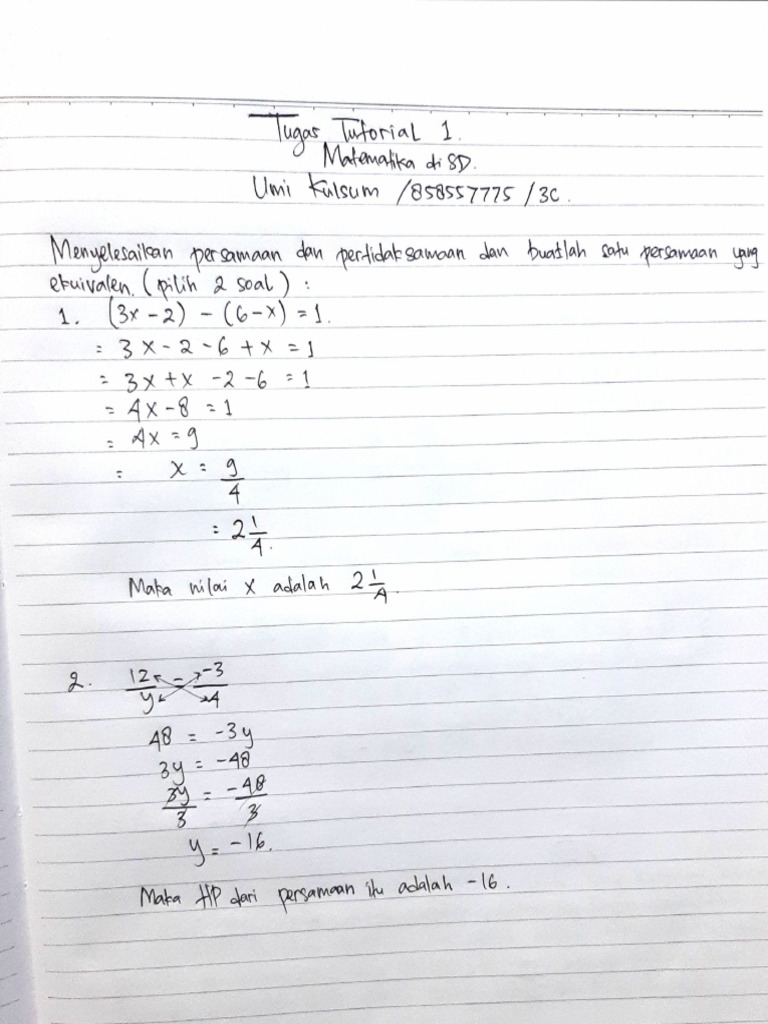 Tugas Tutorial 1.
Matematika di SD.
Umi Kulsum /858557775 / 3C.
Menyelesaikan persamaan dan pertidaksamaan dan buatlah satu persamaan yang
ekuivalen. (pilih 2 soal) :
1. (3x - 2) - (6 - x) = 1.
= 3x - 2 - 6 + x = 1
= 3x + x - 2 - 6 = 1
= 4x - 8 = 1
= 4x = 9
= x = 9/4
= 2 1/4.
Maka nilai x adalah 2 1/4.
2. 12/y = -3/4
48 = -3y
3y = -48
3y/3 = -48/3
y = -16.
Maka HP dari persamaan itu adalah -16.